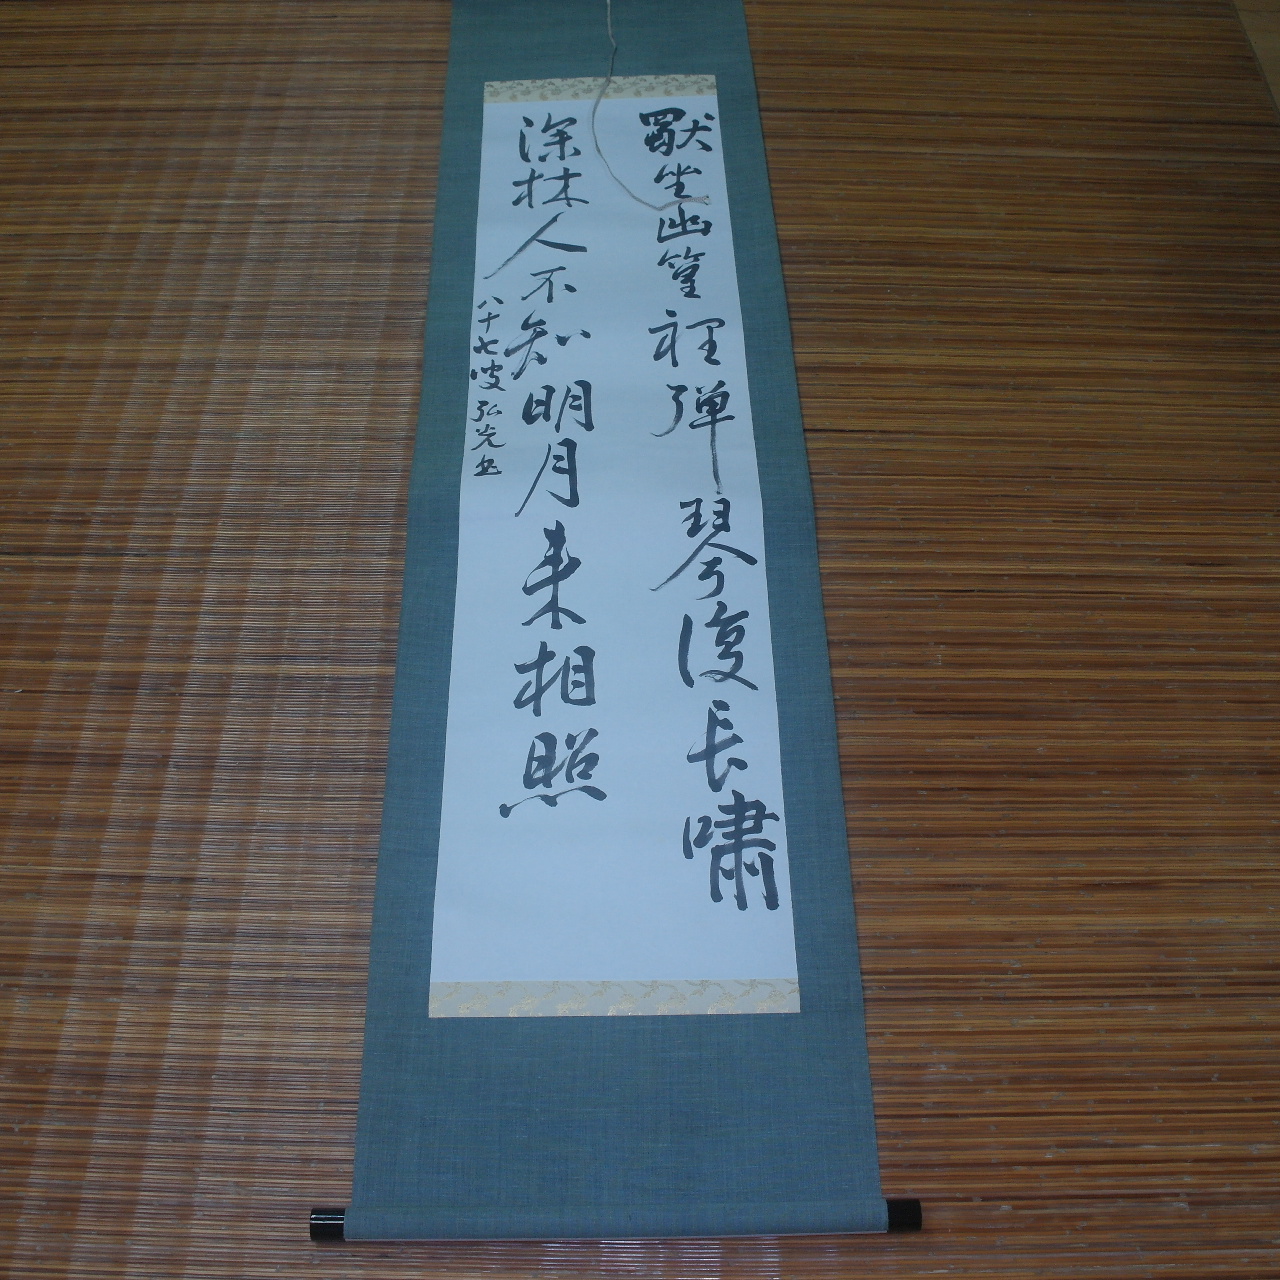 獨坐幽篁裡彈琴復長嘯
深林人不知明月来相照
八十七叟弘光書